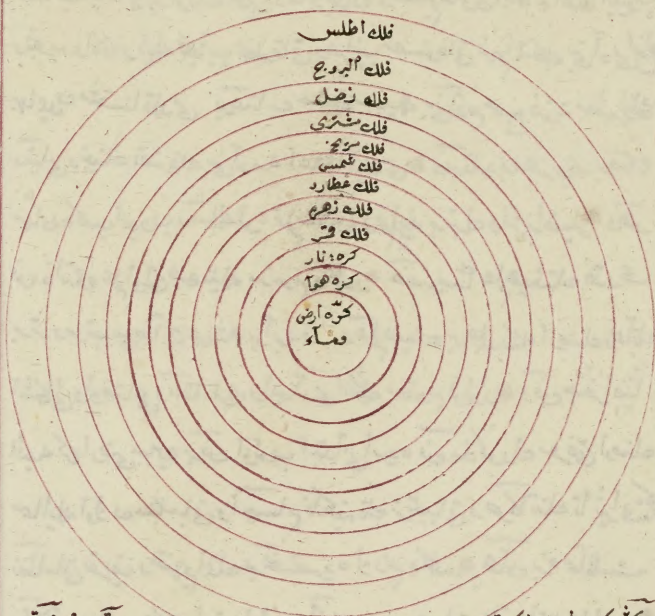 فلك اطلس
فلك البروج
فلك زحل
فلك مشترى
فلك مريخ
فلك شمس
فلك عطارد
فلك زهره
فلك قمر
كره نار
كره هوآ
كرّه ارض
وماء